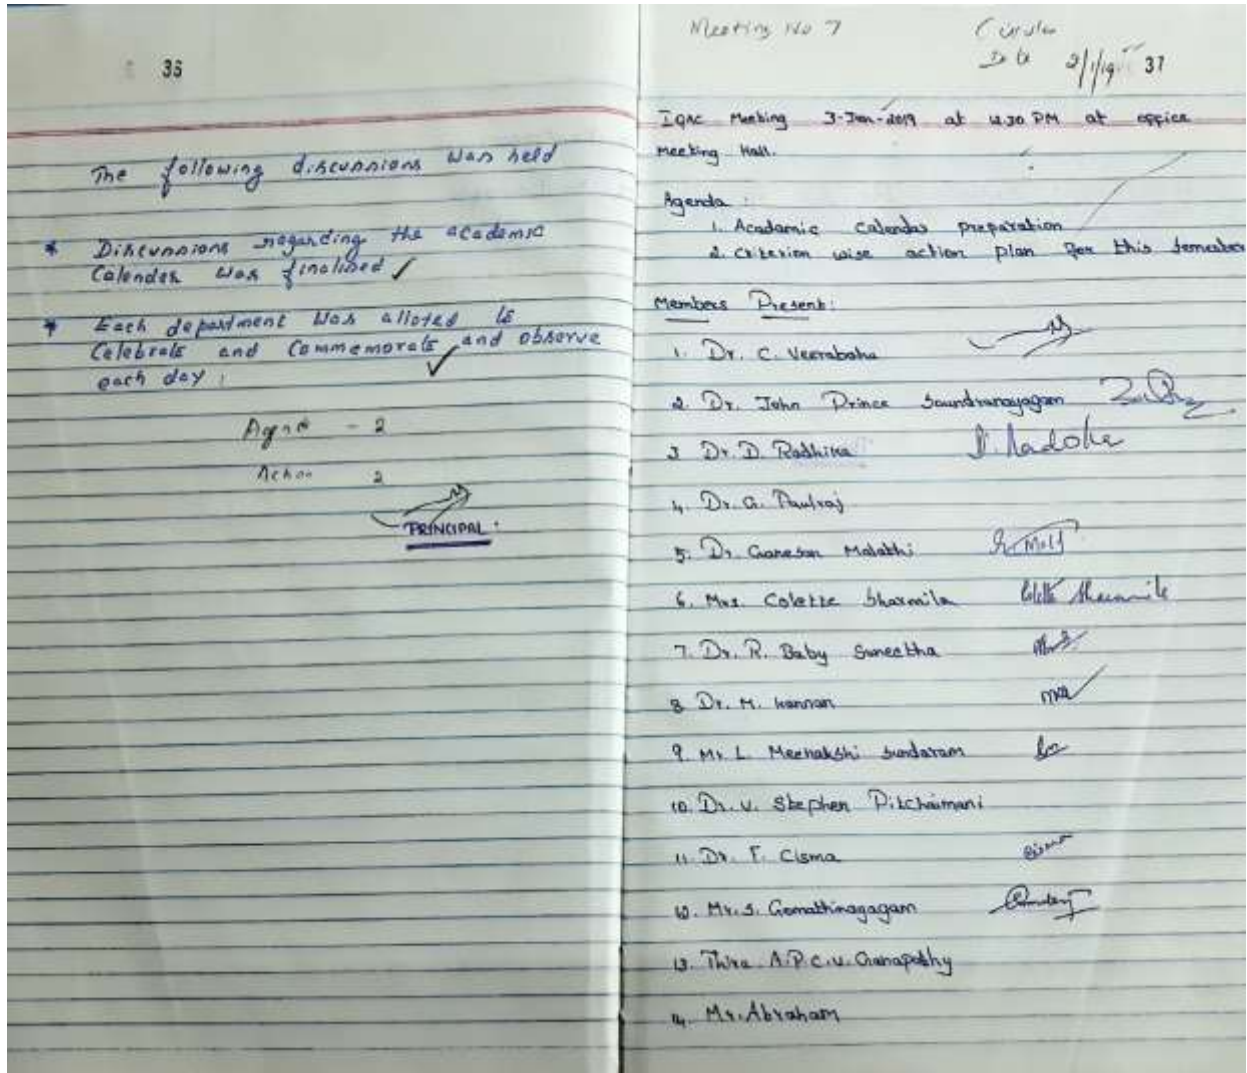 36
The following discussions was held
* Discussions regarding the academic
Calender was finalised ✓
* Each department was alloted to
Celebrate and Commemorate and observe
each day. ✓
- 2
Action 2
PRINCIPAL.
Meeting No 7
Circular
2/1/19 37
IQAC Meeting 3-Jan-2019 at 12.30 PM at office
Meeting Hall.
Agenda :
1. Academic calendar preparation
2. Criterion wise action plan for this semester
Members Present:
1. Dr. C. Veerabaha
2. Dr. John Prince Soundranayagam
3 Dr. D. Radhika D. Radhika
4. Dr. G. Paulraj
5. Dr. Ganesan Malathi
6. Mrs. Colette Sharmila Colette Sharmila
7. Dr. R. Baby Suneetha
8 Dr. M. Kannan
9. Mr. L. Meenakshi Sundaram
10. Dr. V. Stephen Pitchaimani
11. Dr. F. Cisma
12. Mr. S. Gomathinayagam
13. Thiru. A.P.C.V. Ganapathy
14. Mr. Abraham